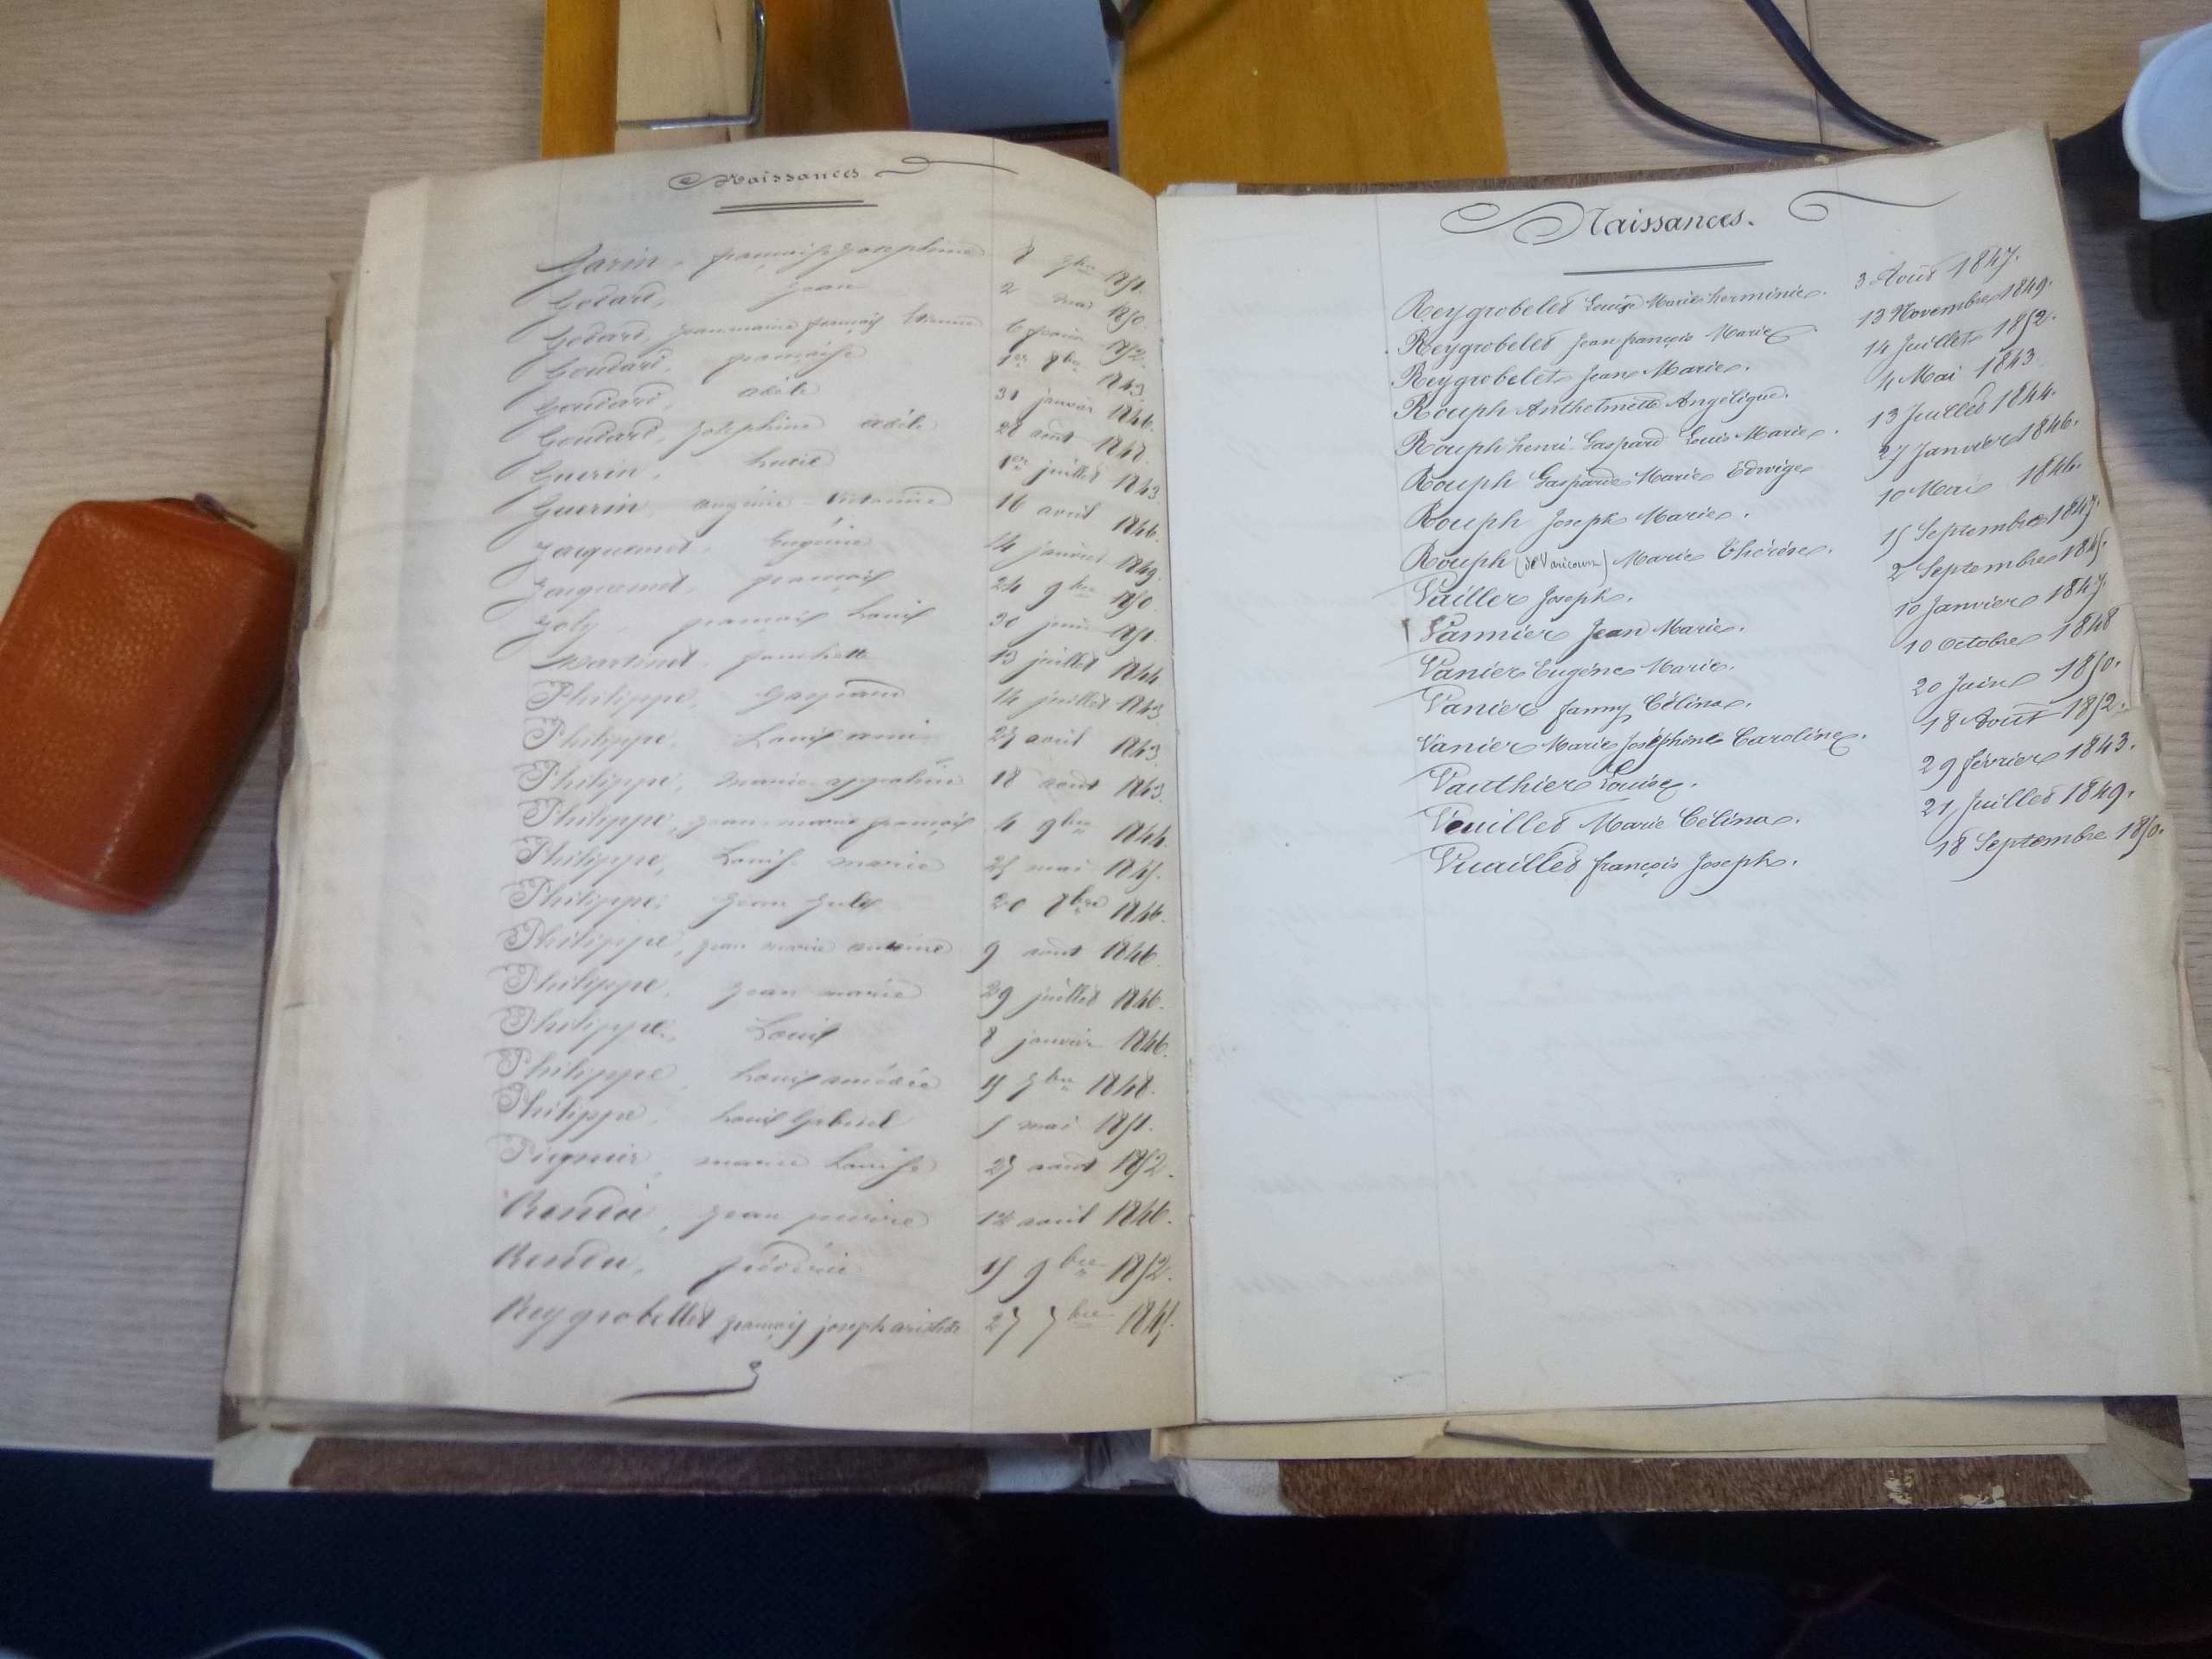 Naissances
Garin, françoise Josephine 8 7bre 1851.
Godard, Jean 2 mai 1850
Godard, Jean marie françois Etienne 6 1852
Goudard, françoise 1er 8bre 1843
Goudard, adèle 31 janvier 1846.
Goudard, Joséphine adèle 28 août 1848
Guerin, Lucie 1er juillet 1843
Guerin, 16 avril 1846.
Jacquemet, Eugénie 14 janvier 1849
Jacquemet, françois 24 9bre 1850.
Joly françois Louis 30 juin 1851.
Martinet, franchette 13 juillet 1844
Philippe, Gaspard 14 juillet 1843
Philippe, Louis 27 avril 1843
Philippe, marie appoline 18 août 1843.
Philippe, Jean marie françois 4 9bre 1844.
Philippe, Louis marie 25 mai 1845.
Philippe, Jean Jules 20 8bre 1846.
Philippe, jean marie antoine 9 août 1846
Philippe, Jean marie 29 juillet 1846.
Philippe, Louis 8 janvier 1846.
Philippe, Louis amédée 15 7bre 1848.
Philippe, Louis Gabriel 5 mai 1851.
Pignier, marie Louise 27 août 1852.
Rendu, Jean pierre 12 avril 1846.
Rendu, 15 9bre 1852.
Reygrobellet françois joseph aristide 27 7bre 1845.
Naissances.
Reygrobelet Louise Marie herminie. 3 Août 1847.
Reygrobelet Jean françois Marie 13 Novembre 1849.
Reygrobelet Jean Marie. 14 Juillet 1852.
Rouph Anthelmette Angélique. 4 Mai 1843
Rouph henri Gaspard Louis Marie. 13 Juillet 1844.
Rouph Gasparde Marie Edwige 27 Janvier 1846.
Rouph Joseph Marie. 10 Mai 1846.
Rouph (de Varicourt) Marie Thérèse. 15 Septembre 1847.
Vailler Joseph. 2 Septembre 1845.
Vannier Jean Marie. 10 Janvier 1847
Vanier Eugène Marie. 10 Octobre 1848
Vanier fanny Célina. 20 Juin 1850.
Vanier Marie Joséphine Caroline. 18 Août 1852.
Vauthier Louise. 29 février 1843.
Vouillet Marie Célina. 21 Juillet 1849.
Vuaillet françois Joseph. 18 Septembre 1850.